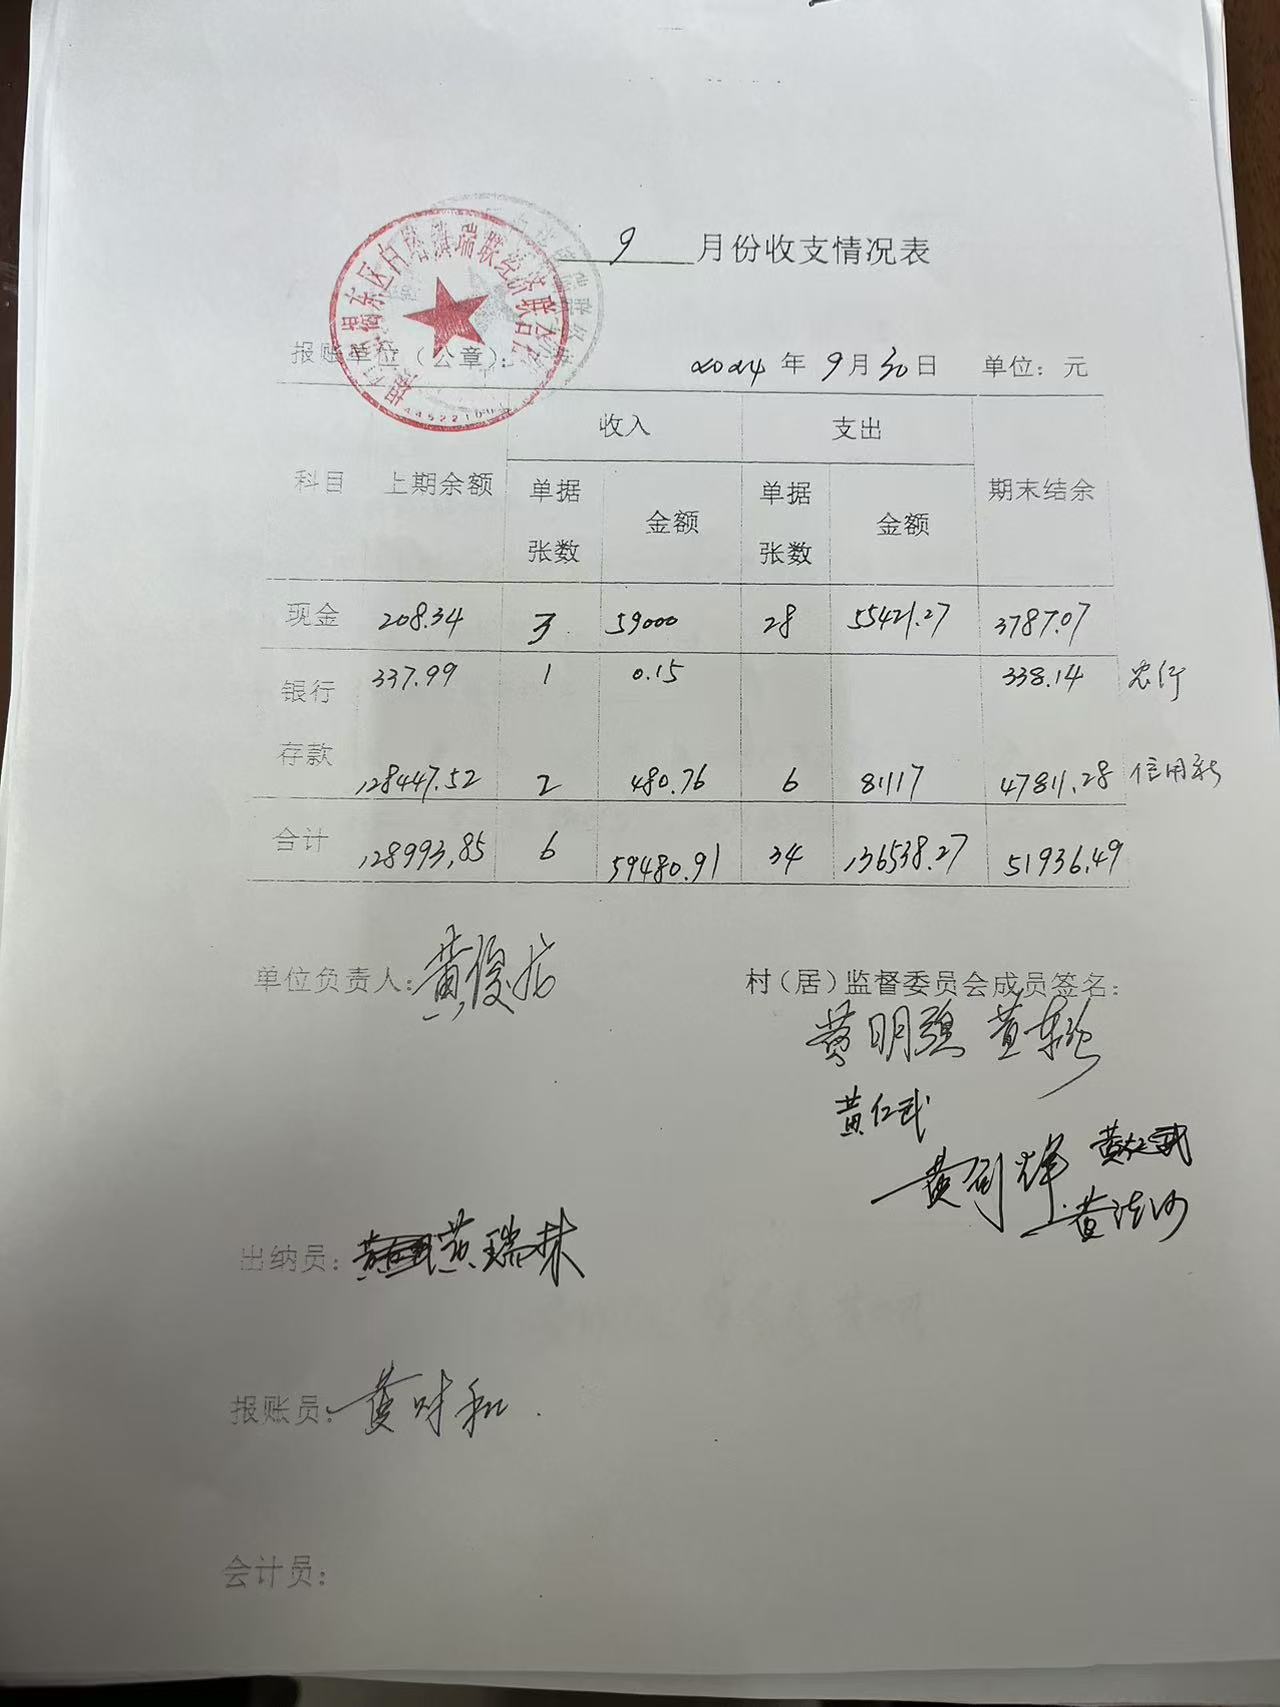 9 月份收支情况表
揭东区白塔镇瑞联经济联合
报账单位（公章）： 2024 年 9 月 30 日 单位：元
科目 上期余额 收入 支出 期末结余
单据张数 金额 单据张数 金额
现金 208.34 3 59000 28 55421.27 3787.07
银行存款 337.99 1 0.15 338.14 农行
128447.52 2 480.76 6 81117 47811.28 信用社
合计 128993.85 6 59480.91 34 136538.27 51936.49
单位负责人：黄俊 村（居）监督委员会成员签名：
黄明强 黄
黄仁武
黄剑辉
黄
出纳员： 黄瑞林
报账员：黄
会计员：